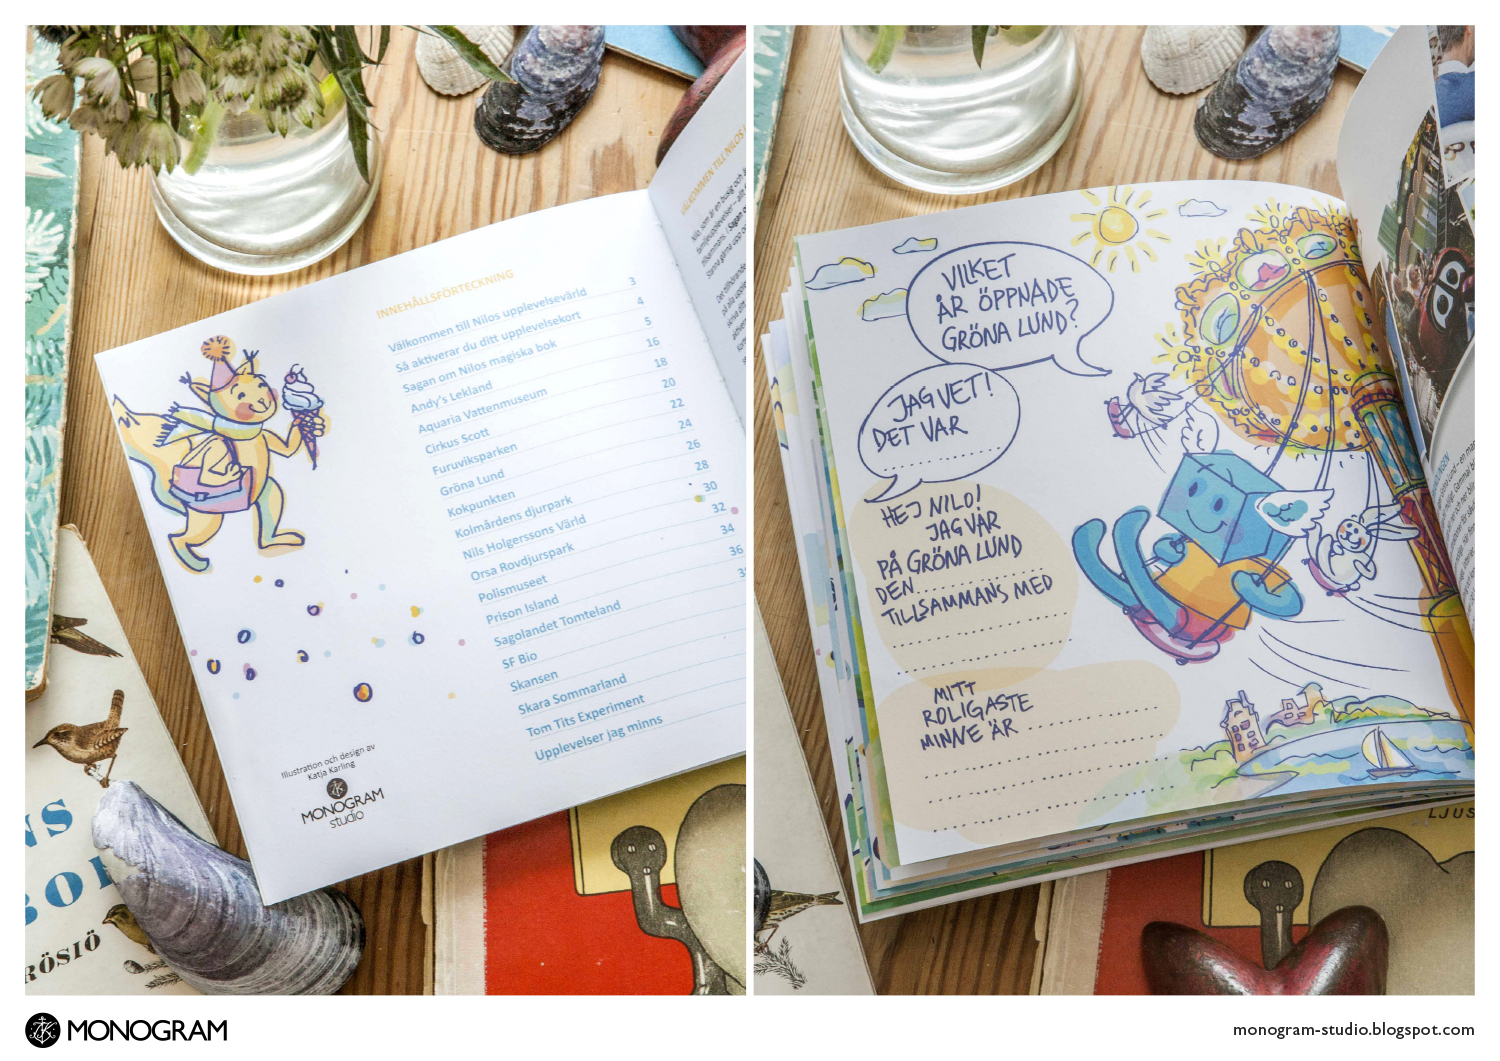 INNEHÅLLSFÖRTECKNING
Välkommen till Nilos upplevelsevärld 3
Så aktiverar du ditt upplevelsekort 4
Sagan om Nilos magiska bok 5
Andy's Lekland 16
Aquaria Vattenmuseum 18
Cirkus Scott 20
Furuviksparken 22
Gröna Lund 24
Kokpunkten 26
Kolmårdens djurpark 28
Nils Holgerssons Värld 30
Orsa Rovdjurspark 32
Polismuseet 34
Prison Island 36
Sagolandet Tomteland
SF Bio
Skansen
Skara Sommarland
Tom Tits Experiment
Upplevelser jag minns
Illustration och design av
Katja Karling
MONOGRAM
studio
VÄLKOMMEN TILL NILOS
NS
RÖSIÖ
VILKET
ÅR ÖPPNADE
GRÖNA LUND?
JAG VET!
DET VAR
HEJ NILO!
JAG VAR
PÅ GRÖNA LUND
DEN
TILLSAMMANS MED
MITT
ROLIGASTE
MINNE ÄR
LJUS
MONOGRAM
monogram-studio.blogspot.com